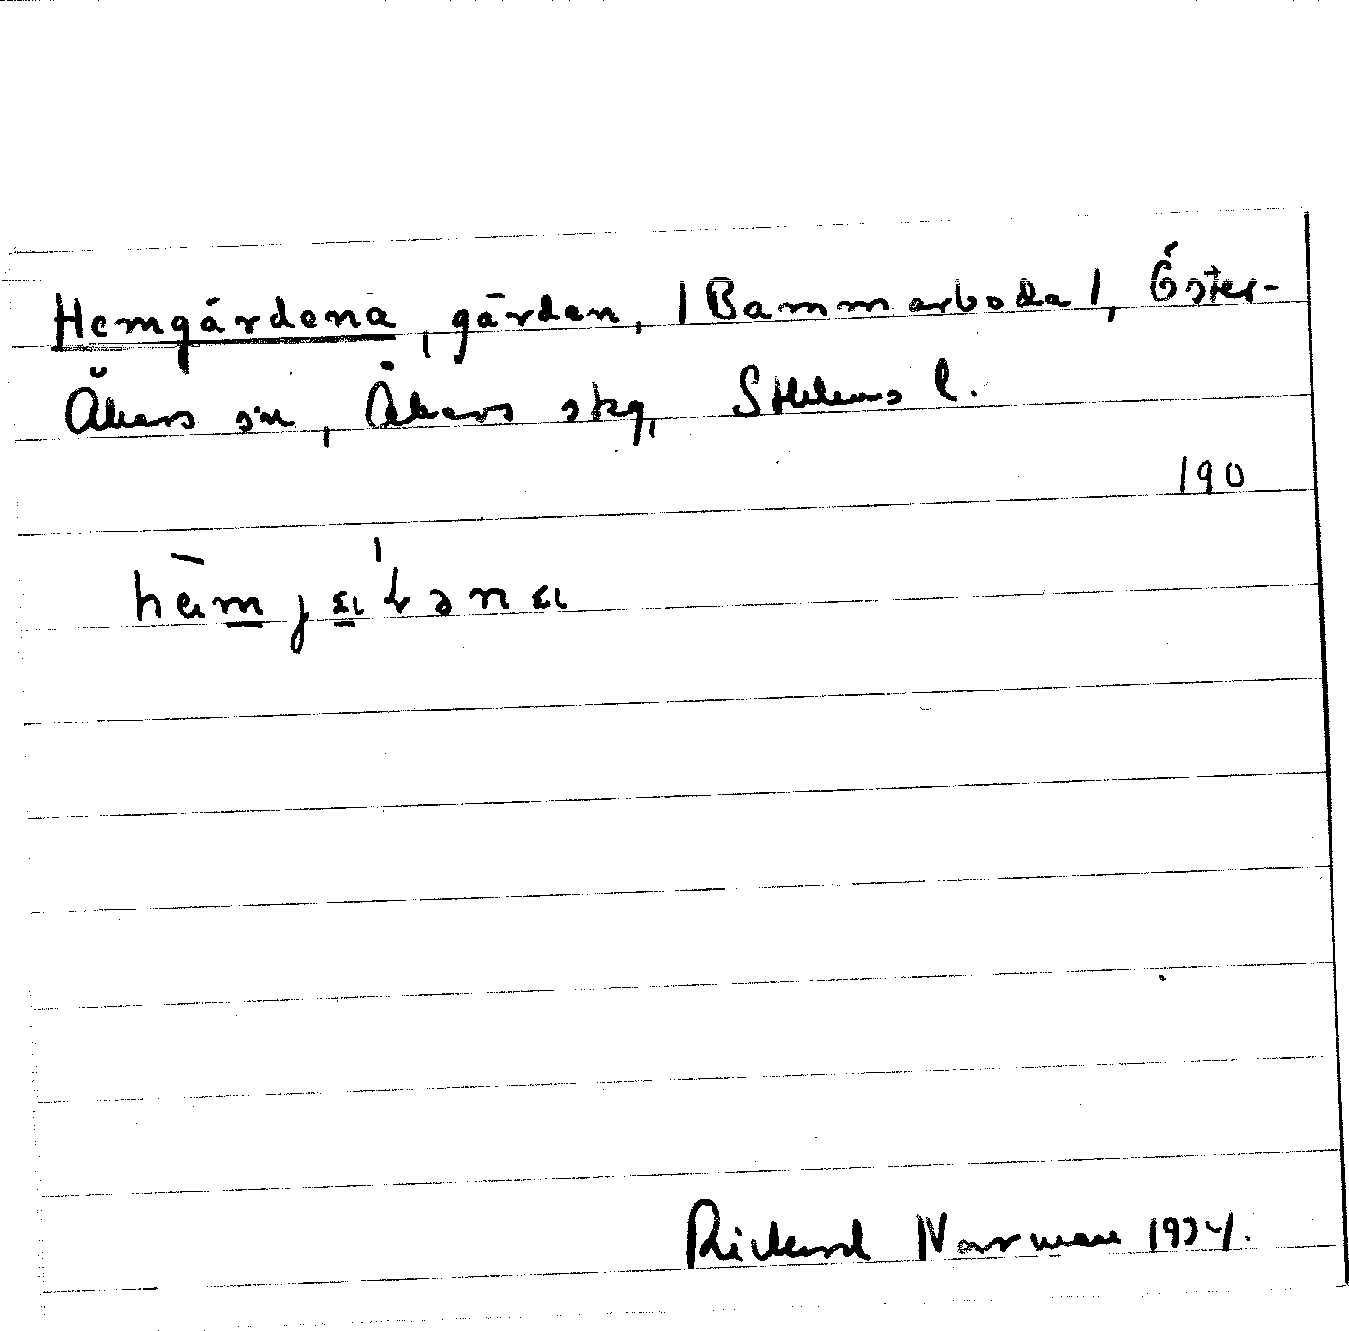 Hemgårdena, gården, (Bammarboda), Öster-
Åkers sn, Åkers skg, Sthlms l.
190
Rickard Norman 1934.